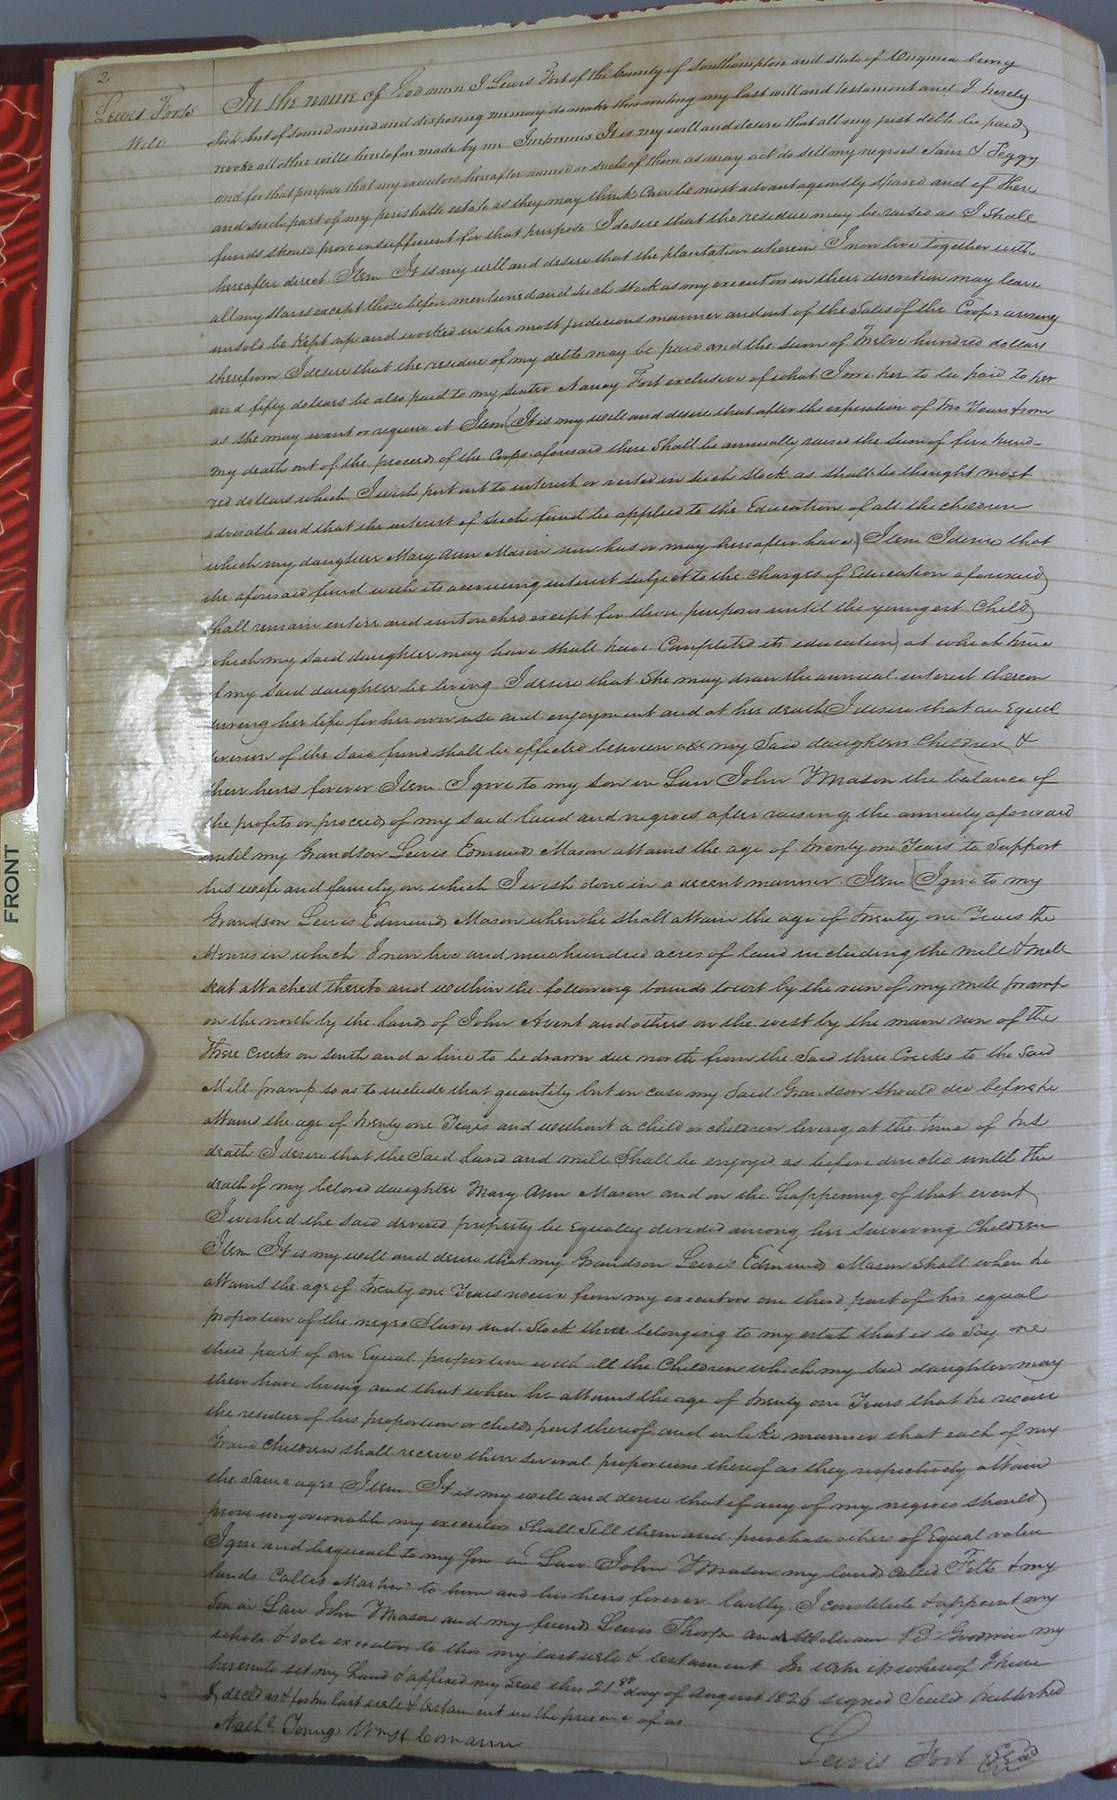 2
Lewis Forts
Will
In the name of God amen I Lewis Fort of the County of Southampton and state of Virginia being
sick but of sound mind and disposing memory do make this writing my last will and testament and I hereby
revoke all other wills heretofore made by me Imprimis It is my will and desire that all my just debts be paid
and for that purpose that my executors hereafter named or such of them as may act do sell my negroes Sam & Peggy
and such part of my perishable estate as they may think can be most advantageously spared and if these
funds should prove insufficient for that purpose I desire that the residue may be raised as I shall
hereafter direct Item It is my will and desire that the plantation whereon I now live together with
all my slaves except those before mentioned and such stock as my executors in their discretion may leave
unsold be kept up and worked in the most judicious manner and out of the Sales of the Crops arising
therefrom I desire that the residue of my debts may be paid and the sum of Twelve hundred dollars
and fifty dollars be also paid to my sister Nancy Fort exclusive of what I owe her to be paid to her
as she may want or require it Item (It is my will and desire that after the experation of two Years from
my death out of the proceeds of the Crops aforesaid there Shall be annually raised the Sum of five hund-
red dollars which I wish put out to interest or vested in such stock as shall be thought most
advisable and that the interest of such fund be applied to the Education of all the children
which my daughter Mary Ann Mason now has or may hereafter have) Item I desire that
the aforesaid fund with its accruing interest subject to the charges of Education aforesaid
shall remain entire and untouched except for those purposes until the youngest Child
which my said daughter may have shall have Completed its education) at which time
if my said daughter be living I desire that She may draw the annual interest thereon
during her life for her own use and enjoyment and at her death I desire that an Equal
division of the said fund shall be effected between all my Said daughters Children &
their heirs forever Item I give to my son in Law John Y Mason the balance of
the profits or proceeds of my said land and negroes after raising the annuity aforesaid
until my Grandson Lewis Edmund Mason attains the age of twenty one Years to Support
his wife and family on which I wish done in a decent manner Item [I give to my
Grandson Lewis Edmund Mason when he shall attain the age of twenty one Years the
House in which I now live and hundred acres of land including the mill & mill
seat attached thereto and within the following bounds towit by the run of my mill swamp
on the north by the lands of John Avent and others on the west by the main run of the
three creeks on south and a line to be drawn due north from the Said three Creeks to the Said
Mill swamp so as to include that quantity but in case my Said Grandson should die before he
attains the age of twenty one Years and without a child or children living at the time of his
death I desire that the Said land and mill Shall be enjoyed as before directed until the
death of my beloved daughter Mary Ann Mason and on the happening of that event
I wish the said devised property be Equally divided among her surviving Children
Item It is my will and desire that my Grandson Lewis Edmund Mason shall when he
attains the age of twenty one Years receive from my executors one third part of his equal
proportion of the negro Slaves and Stock then belonging to my estate that is to Say one
third part of an Equal proportion with all the Children which my said daughter may
then have living and that when he attains the age of twenty one Years that he receive
the residue of his proportion or childs part thereof and in like manner that each of my
Grand Children shall receive their several proportions thereof as they respectively attain
the same ages Item It is my will and desire that if any of my negroes should
prove ungovernable my executors Shall Sell them and purchase others of Equal value
I give and bequeath to my Son in Law John Y Mason my land called Fitts & my
lands Called Martins to him and his heirs forever lastly I constitute & appoint my
Son in Law John Y Mason and my friends Lewis Thorp and William B Goodwin my
whole & sole executors to this my last will & testament In witness whereof I have
hereunto set my hand & affixed my Seal this 21st day of August 1826 signed Seald Published
& declared as & for his last will & testament in the presence of us
Nathl. Young Wmst Comann
Lewis Fort Seal